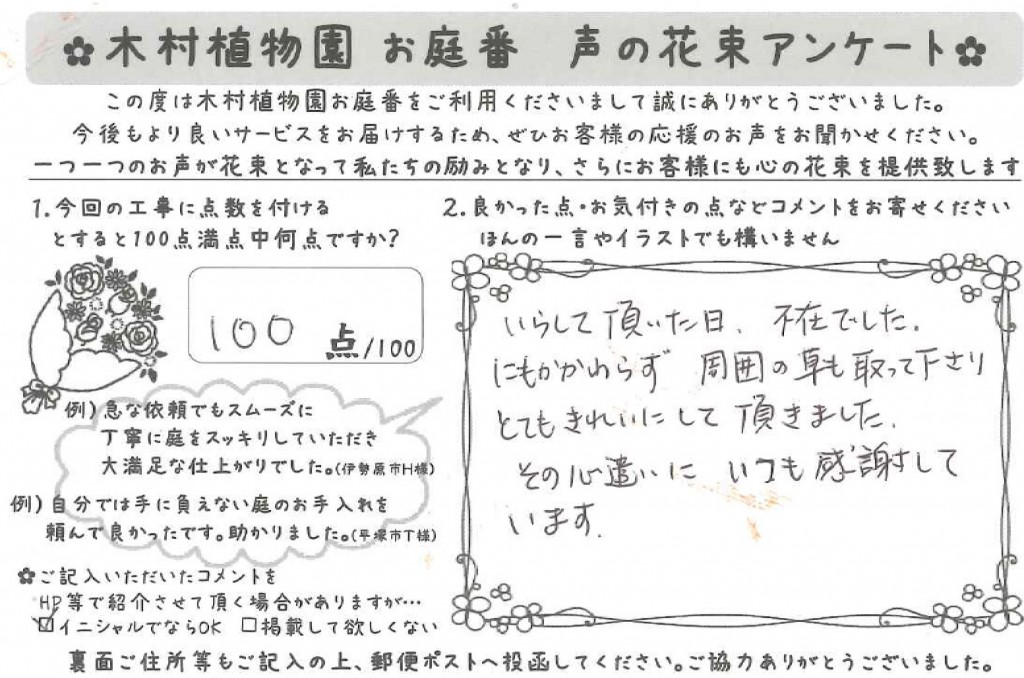 ✿木村植物園 お庭番 声の花束アンケート✿
この度は木村植物園お庭番をご利用くださいまして誠にありがとうございました。
今後もより良いサービスをお届けするため、ぜひお客様の応援のお声をお聞かせください。
一つ一つのお声が花束となって私たちの励みとなり、さらにお客様にも心の花束を提供致します
1.今回の工事に点数を付ける
とすると100点満点中何点ですか?
100点/100
例)急な依頼でもスムーズに
丁寧に庭をスッキリしていただき
大満足な仕上がりでした。(伊勢原市H様)
例)自分では手に負えない庭のお手入れを
頼んで良かったです。助かりました。(平塚市T様)
✿ご記入いただいたコメントを
HP等で紹介させて頂く場合がありますが…
☑イニシャルでならOK □掲載して欲しくない
2.良かった点・お気付きの点などコメントをお寄せください
ほんの一言やイラストでも構いません
いらして頂いた日、不在でした.
にもかかわらず 周囲の草も取って下さり
とてもきれいにして頂きました.
その心遣いに いつも感謝して
います.
裏面ご住所等もご記入の上、郵便ポストへ投函してください。ご協力ありがとうございました。